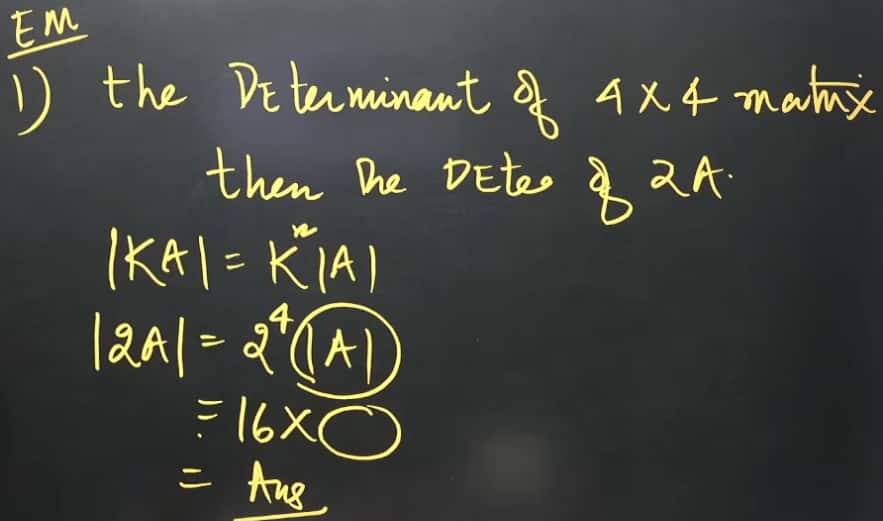 EM
1) the DEterminant of 4x4 matrix
then the DETer of 2A.
|KA| = Kⁿ|A|
|2A| = 2⁴|A|
= 16x
= Ans